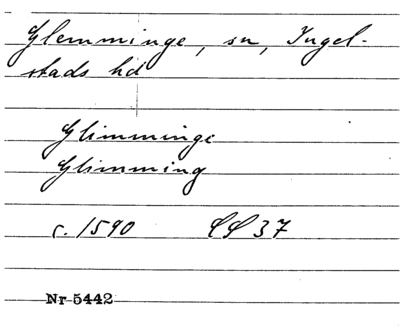 Glemminge, sn, Ingel-
stads hd
Glimminge
Glimming
c. 1590 SS 37
Nr 5442